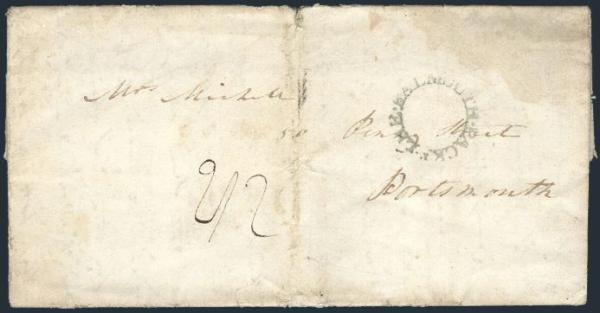 Mrs Michell
50 Penny Street
Portsmouth
2/2
FALMOUTH·PACKET